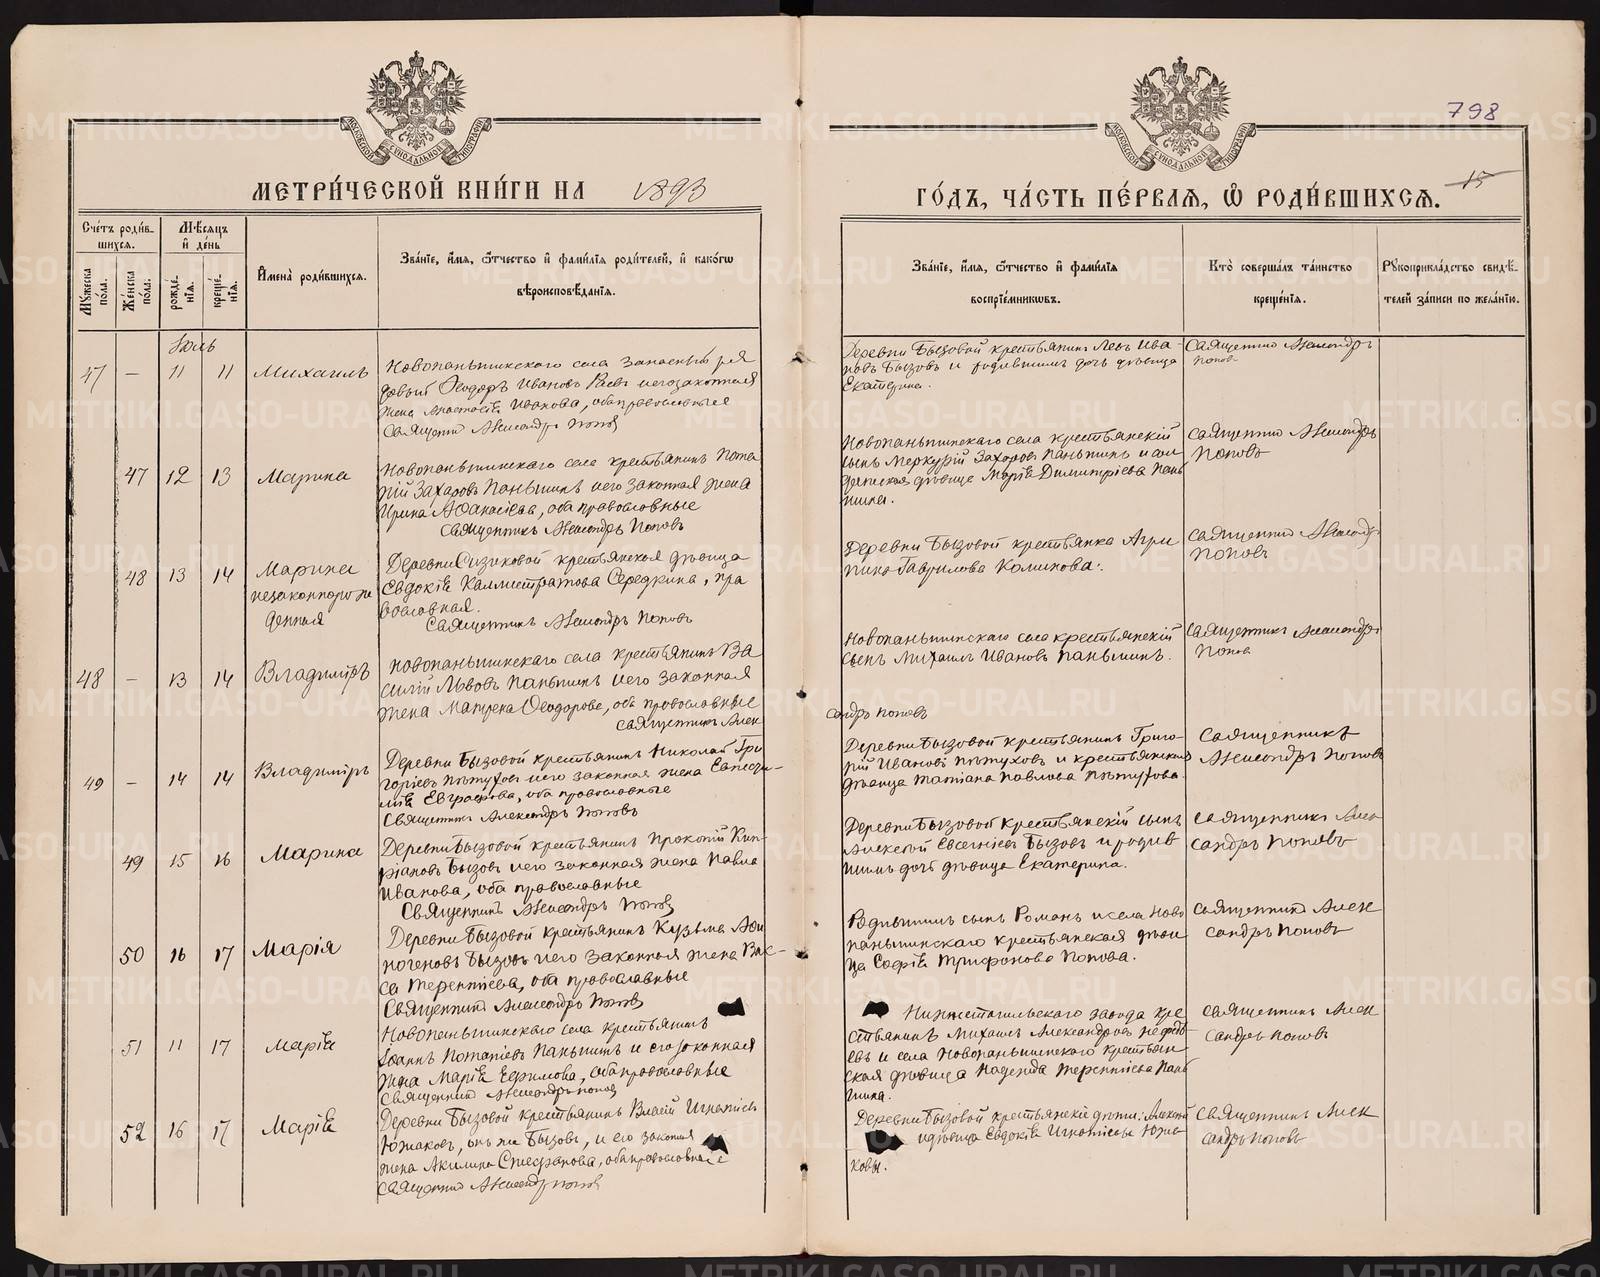 798
15
МЕТРИ́ЧЕСКОЙ КНИ́ГИ НА 1893
ГО́ДЪ, ЧА́СТЬ ПЕ́РВАЯ, Ѿ РОДИ́ВШИХСЯ.
Сче́тъ роди́вшихся.
Мѣ́сяцъ и҆ де́нь
Му́жеска по́ла.
Же́нска по́ла.
рожде́нїя.
креще́нїя.
И҆мена̀ роди́вшихся.
Зва́нїе, и҆́мя, ѻ҆́тчество и҆ фами́лїя роди́телей, и҆ како́гѡ
вѣроисповѣ́данїя.
Зва́нїе, и҆́мя, ѻ҆́тчество и҆ фами́лїя
воспрїе́мникѡвъ.
Кто̀ соверша́лъ та́инство
креще́нїя.
Рꙋкоприкла́дство свидѣ́-
телей за́писи по жела́нїю.
Іюль
47 — 11 11 Михаилъ
Новопаньшинскаго села запасный ря
довый Ѳеодоръ Ивановъ его законная
жена Анастасія Иванова, оба православные
Священник Александръ Попов
Деревни Бызовой крестьянин Левъ Ива-
новъ Бызовъ и родившим дочь дѣвица
Екатерина.
Священник Александръ
Попов
47 12 13 Марина
Новопаньшинскаго села крестьянинъ Пота
пій Захаровъ Паньшинъ и его законная жена
Ирина Аѳанасіева, оба православные
Священникъ Александръ Поповъ
Новопаньшинскаго села крестьянскій
сынъ Меркурій Захаровъ Паньшинъ и сол
датская дѣвица Марія Димитріева Пань
шина.
Священник Александръ
Поповъ
48 13 14 Марина
незаконнорож
денная
Деревни Сизиковой крестьянская дѣвица
Евдокія Каллистратова Середкина, пра
вославная.
Священникъ Александръ Поповъ
Деревни Бызовой крестьянка Агри
пина Гаврилова
Священник Александръ
Поповъ
48 — 13 14 Владиміръ
Новопаньшинскаго села крестьянинъ Ва
силій Львовъ Паньшинъ и его законная
жена Матрена Ѳеодорова, оба православные
Священникъ Алек
сандръ Поповъ
Новопаньшинскаго села крестьянскій
сынъ Михаилъ Ивановъ Паньшинъ.
Священникъ Александръ
Попов
49 — 14 14 Владиміръ
Деревни Бызовой крестьянинъ Николай Гри
горіевъ Пѣтуховъ и его законная жена
Евграфова, оба православные
Священникъ Александръ Поповъ
Деревни Бызовой крестьянинъ Григо-
рій Ивановъ Пѣтуховъ и крестьянская
дѣвица Татіана Павлова Пѣтухова.
Священникъ
Александръ Поповъ
49 15 16 Марина
Деревни Бызовой крестьянинъ Прокопій Кип-
ріановъ Бызовъ и его законная жена Павла
Иванова, оба православные
Священникъ Александръ Попов
Деревни Бызовой крестьянскій сынъ
Алексѣй Евгеніевъ Бызовъ и родив
шимъ дочь дѣвица Екатерина.
Священникъ Алек
сандръ Поповъ
50 16 17 Марія
Деревни Бызовой крестьянинъ Кузьма Аѳи
ногеновъ Бызовъ и его законная жена Вас-
са Терентіева, оба православные
Священникъ Александръ Попов
Родившимъ сынъ Романъ и села Ново
паньшинскаго крестьянская дѣви
ца Софія Трифонова Попова.
Священникъ Алек
сандръ Поповъ
51 11 17 Марія
Новопаньшинскаго села крестьянинъ
Іоаннъ Потапіевъ Паньшинъ и его законная
жена Марія Ефимова, оба православные
Священник Александръ Попов
Нижнетагильскаго завода кре
стьянинъ Михаилъ Александровъ
евъ и села Новопаньшинскаго крестьян-
ская дѣвица Надежда Терентіева Пань
шина.
Священникъ Алек
сандръ Поповъ
52 16 17 Марія
Деревни Бызовой крестьянинъ Власій Игнатіевъ
Южаковъ, онъ же Бызовъ, и его законная
жена Акилина Стефанова, оба православные
Священник Александръ Попов
Деревни Бызовой крестьянскіе дѣти: Алексѣй
и дѣвица Евдокія Игнатіевы Южа-
ковы.
Священникъ Алек
сандръ Поповъ
METRIKI.GASO-URAL.RU